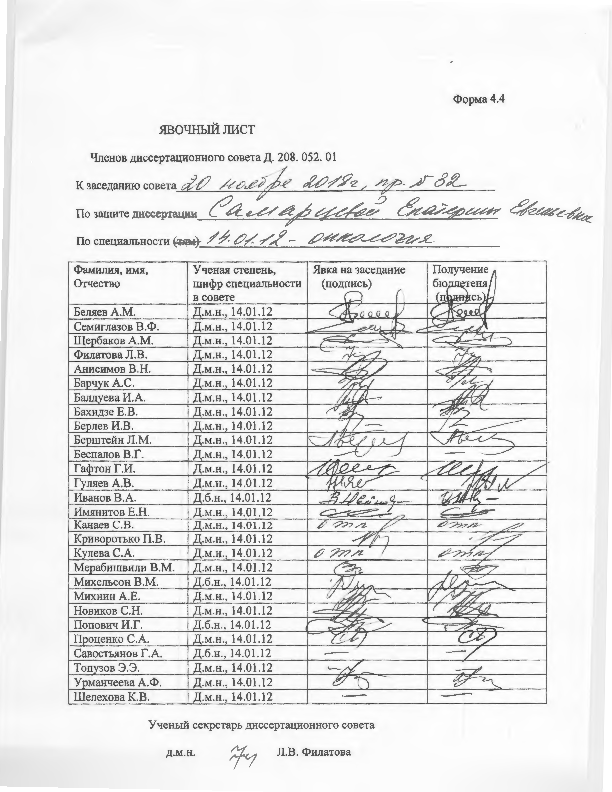 Форма 4.4
ЯВОЧНЫЙ ЛИСТ
Членов диссертационного совета Д. 208. 052. 01
К заседанию совета 20 ноября 2018г, пр. № 32
По защите диссертации Самарцевой Екатерины Евгеньевны
По специальности (там) 14.01.12 - онкология
Фамилия, имя, Отчество | Ученая степень, шифр специальности в совете | Явка на заседание (подпись) | Получение бюллетеня (подпись)
Беляев А.М. Д.м.н., 14.01.12
Семиглазов В.Ф. Д.м.н., 14.01.12
Щербаков А.М. Д.м.н., 14.01.12
Филатова Л.В. Д.м.н., 14.01.12
Анисимов В.Н. Д.м.н., 14.01.12
Барчук А.С. Д.м.н., 14.01.12
Балдуева И.А. Д.м.н., 14.01.12
Бахидзе Е.В. Д.м.н., 14.01.12
Берлев И.В. Д.м.н., 14.01.12
Берштейн Л.М. Д.м.н., 14.01.12
Беспалов В.Г. Д.м.н., 14.01.12
Гафтон Г.И. Д.м.н., 14.01.12
Гуляев А.В. Д.м.н., 14.01.12
Иванов В.А. Д.б.н., 14.01.12
Имянитов Е.Н. Д.м.н., 14.01.12
Канаев С.В. Д.м.н., 14.01.12
Криворотько П.В. Д.м.н., 14.01.12
Кулева С.А. Д.м.н., 14.01.12
Мерабишвили В.М. Д.м.н., 14.01.12
Михельсон В.М. Д.б.н., 14.01.12
Михнин А.Е. Д.м.н., 14.01.12
Новиков С.Н. Д.м.н., 14.01.12
Попович И.Г. Д.б.н., 14.01.12
Проценко С.А. Д.м.н., 14.01.12
Савостьянов Г.А. Д.б.н., 14.01.12
Топузов Э.Э. Д.м.н., 14.01.12
Урманчеева А.Ф. Д.м.н., 14.01.12
Шелехова К.В. Д.м.н., 14.01.12
Ученый секретарь диссертационного совета
д.м.н. Л.В. Филатова